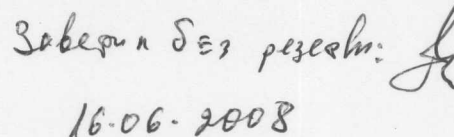 Заверил без резерви:
16.06.2008